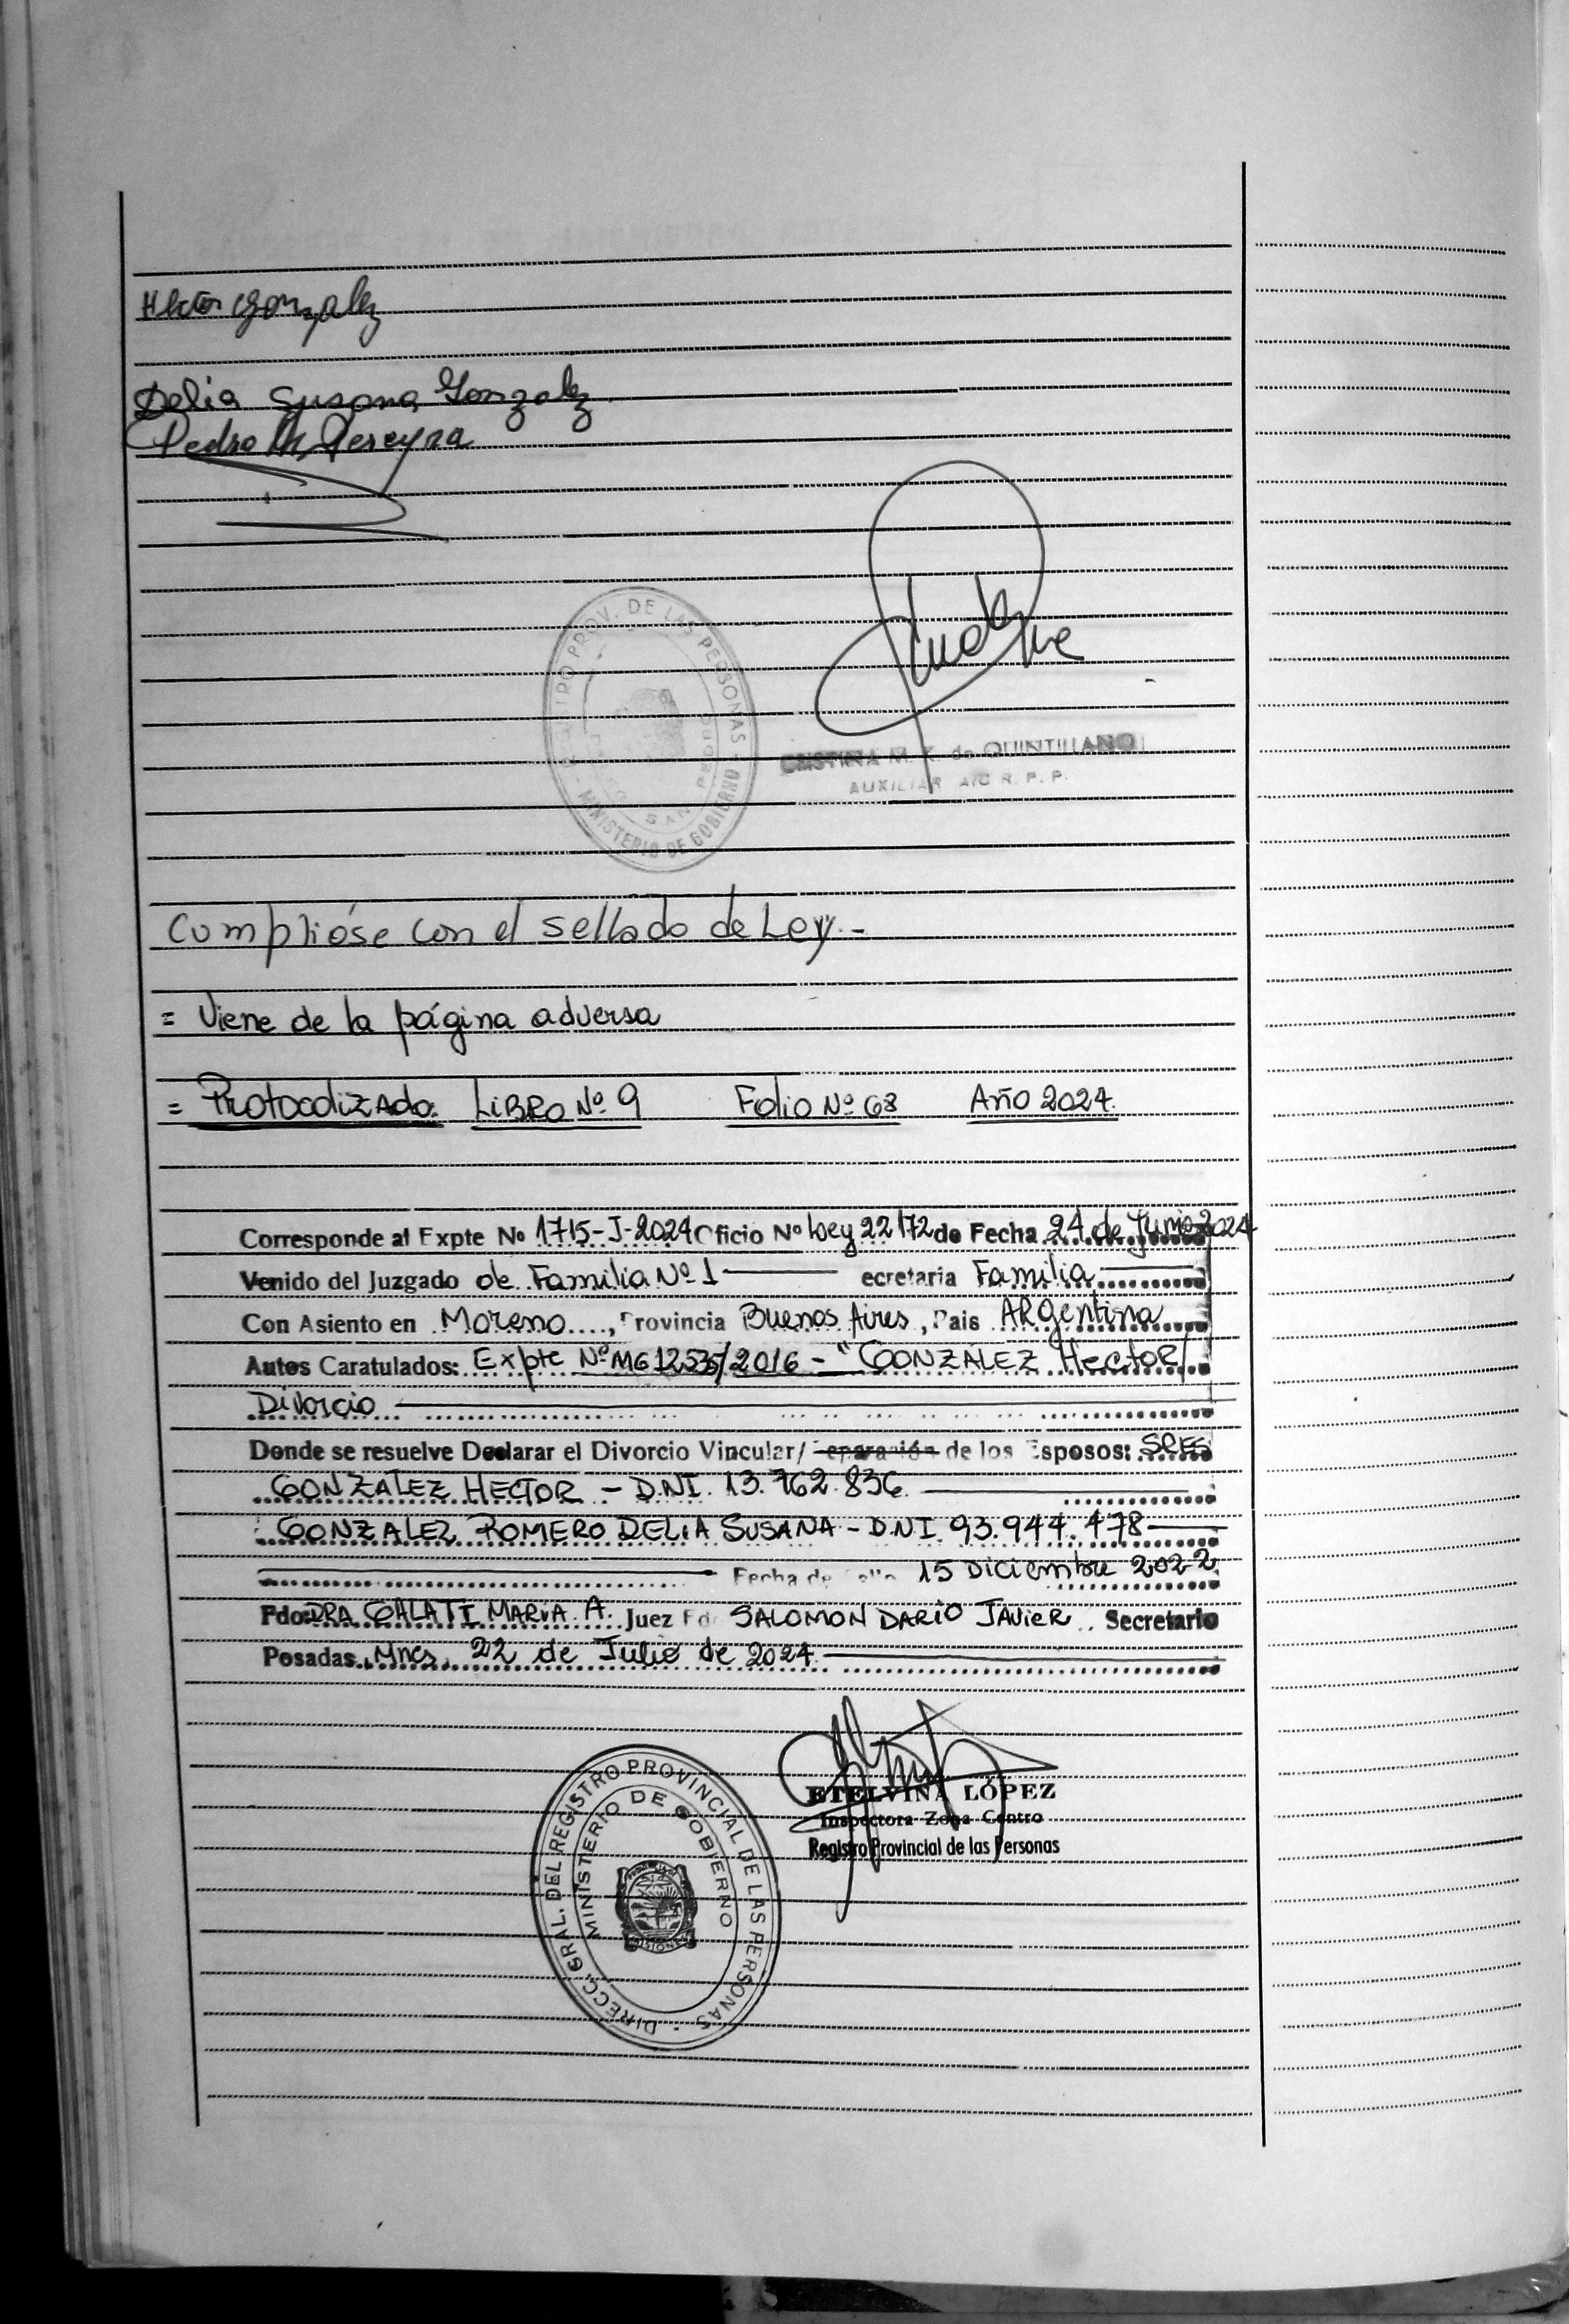 Hector Gonzalez
Delia Susana Gonzalez
Pedro M. Pereyra
REGISTRO PROV. DE LAS PERSONAS - MINISTERIO DE GOBIERNO
SAN PEDRO
CRISTINA M. de QUINTILLANO
AUXILIAR A/C R. P. P.
Cumplióse con el sellado de Ley.-
= Viene de la página adversa
= Protocolizado: LIBRO Nº 9 Folio Nº 68 Año 2024.
Corresponde al Expte No 1715-J-2024 Oficio Nº Ley 22172 de Fecha 24 de Junio 2024
Venido del Juzgado de Familia Nº 1 ecretaria Familia
Con Asiento en Moreno, Provincia Buenos Aires, Pais ARgentina
Autos Caratulados: Expte Nº MG 12535/2016 - "GONZALEZ Hector/
Divorcio
Donde se resuelve Declarar el Divorcio Vincular/ Separación de los Esposos: SRES
GONZALEZ HECTOR - D.N.I. 13.762.836.
GONZALEZ ROMERO DELIA SUSANA - D.N.I. 93.944.478
Fecha de Fallo 15 Diciembre 2022
Fdo: DRA GALATI MARIA A. Juez Fdo SALOMON DARIO JAVIER. Secretario
Posadas, Mnes, 22 de Julio de 2024.
ETELVINA LÓPEZ
Inspectora Zona Centro
Registro Provincial de las Personas
DIRECC. GRAL. DEL REGISTRO PROVINCIAL DE LAS PERSONAS
MINISTERIO DE GOBIERNO
MISIONES